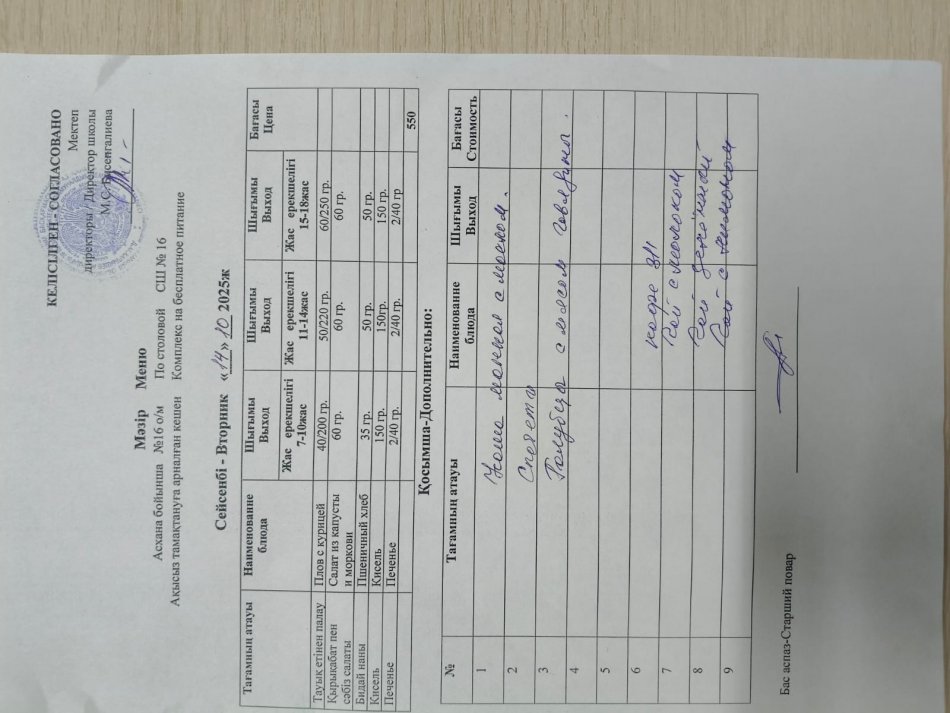 КЕЛІСІЛГЕН - СОГЛАСОВАНО
Мектеп
директоры / Директор школы
М.С. Бисенгалиева
Мәзір Меню
Асхана бойынша №16 о/м По столовой СШ № 16
Ақысыз тамақтануға арналған кешен Комплекс на бесплатное питание
Сейсенбі - Вторник «14» 10 2025ж
Тағамның атауы Наименование блюда Шығымы Выход Шығымы Выход Шығымы Выход Бағасы Цена
Жас ерекшелігі 7-10жас Жас ерекшелігі 11-14жас Жас ерекшелігі 15-18жас
Тауық етінен палау Плов с курицей 40/200 гр. 50/220 гр. 60/250 гр.
Қырықабат пен сәбіз салаты Салат из капусты и моркови 60 гр. 60 гр. 60 гр.
Бидай наны Пшеничный хлеб 35 гр. 50 гр. 50 гр.
Кисель Кисель 150 гр. 150гр. 150 гр.
Печенье Печенье 2/40 гр. 2/40 гр. 2/40 гр
550
Қосымша-Дополнительно:
№ Тағамның атауы Наименованне блюда Шығымы Выход Бағасы Стоимость
1 Каша манная с маслом.
2 Спагетти
3 Голубцы с мясом говядины.
4
5
6 кофе 3/1
7 Чай с молоком
8 Чай зелёный
9 Чай с лимоном
Бас аспаз-Старший повар